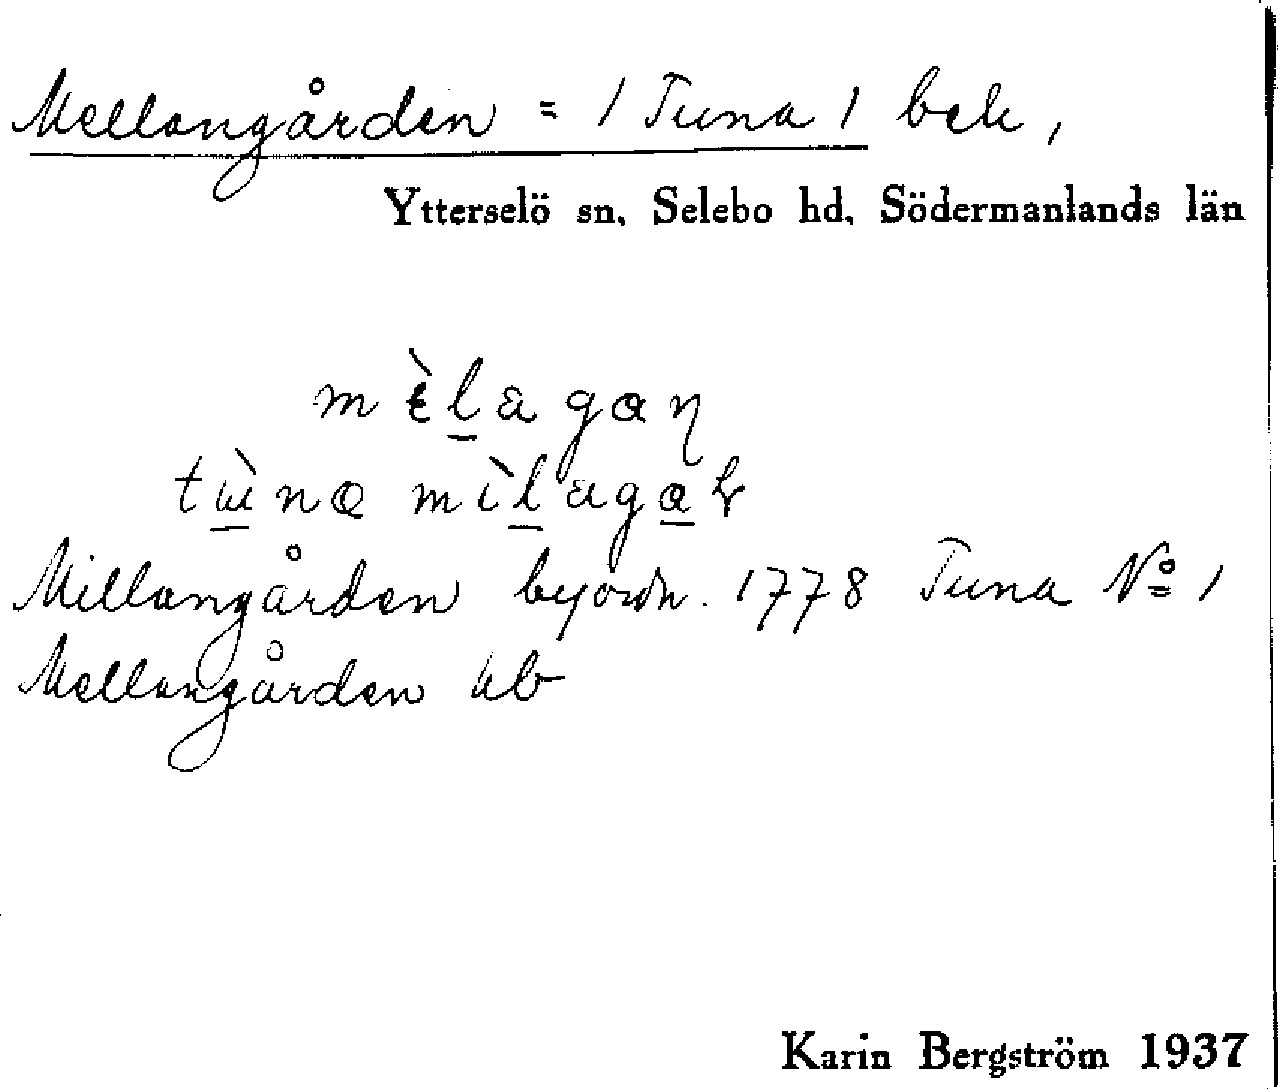 Mellangården = / Tuna 1 bek,
Ytterselö sn, Selebo hd, Södermanlands län
mɛ̀l̲agaɳ
Millangården byordn. 1778 Tuna No 1
Mellangården ub
Karin Bergström 1937